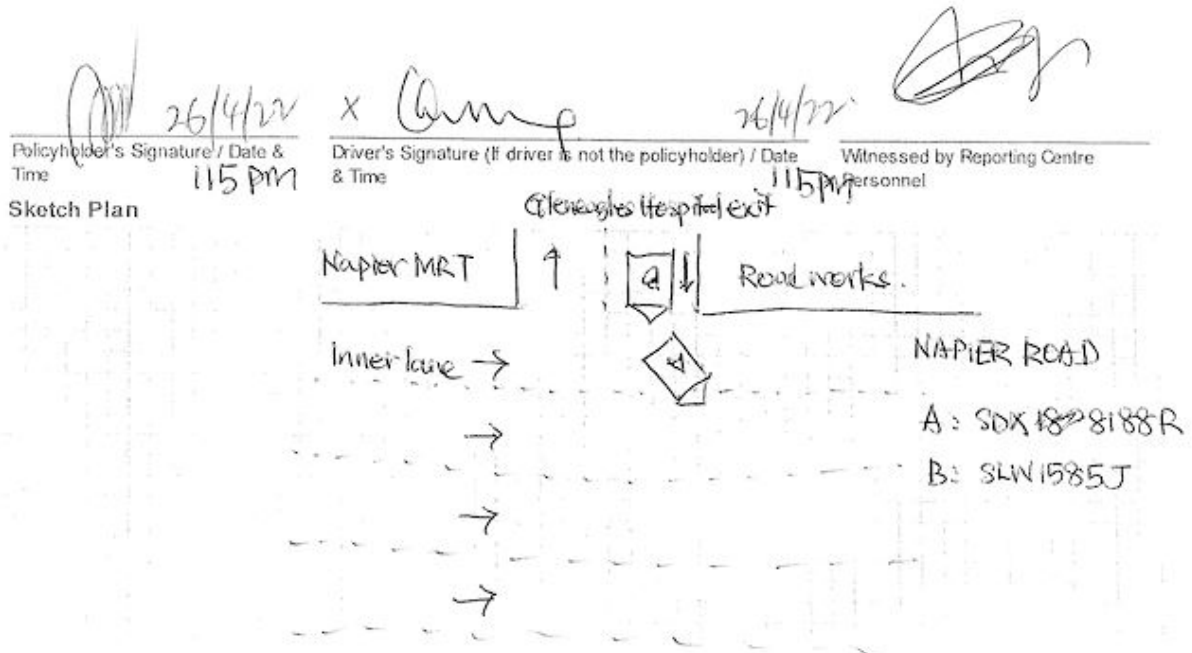 26/4/22 X 26/4/22
Policyholder's Signature / Date & Time
115 pm
Driver's Signature (If driver is not the policyholder) / Date & Time
115pm
Witnessed by Reporting Centre Personnel
Sketch Plan
Gleneagles Hospital exit
Napier MRT
B
Road works.
inner lane
A
NAPIER ROAD
A: SDX 8188R
B: SLW1585J